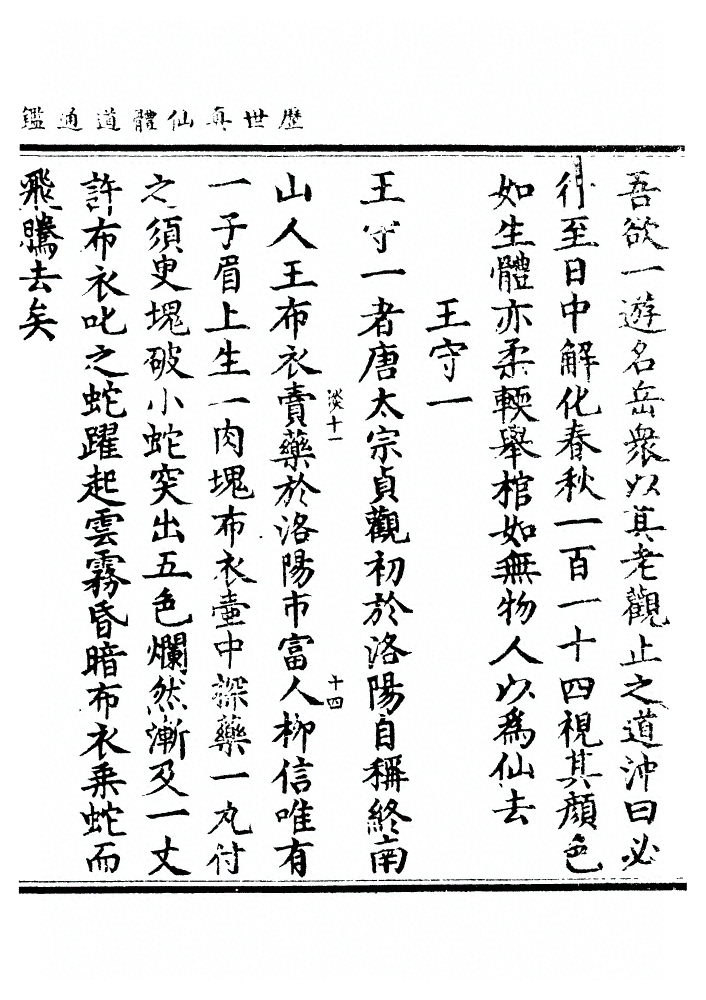 歷世真仙體道通鑑
吾欲一遊名岳衆以其老觀止之道沖曰必
行至日中解化春秋一百一十四視其顏色
如生體亦柔輭舉棺如無物人以爲仙去
王守一
王守一者唐太宗貞觀初於洛陽自稱終南
淡十一
十四
山人王布衣賣藥於洛陽市富人柳信唯有
一子眉上生一肉塊布衣壷中探藥一丸付
之須臾塊破小蛇突出五色爛然漸及一丈
許布衣叱之蛇躍起雲霧昏暗布衣乘蛇而
飛騰去矣